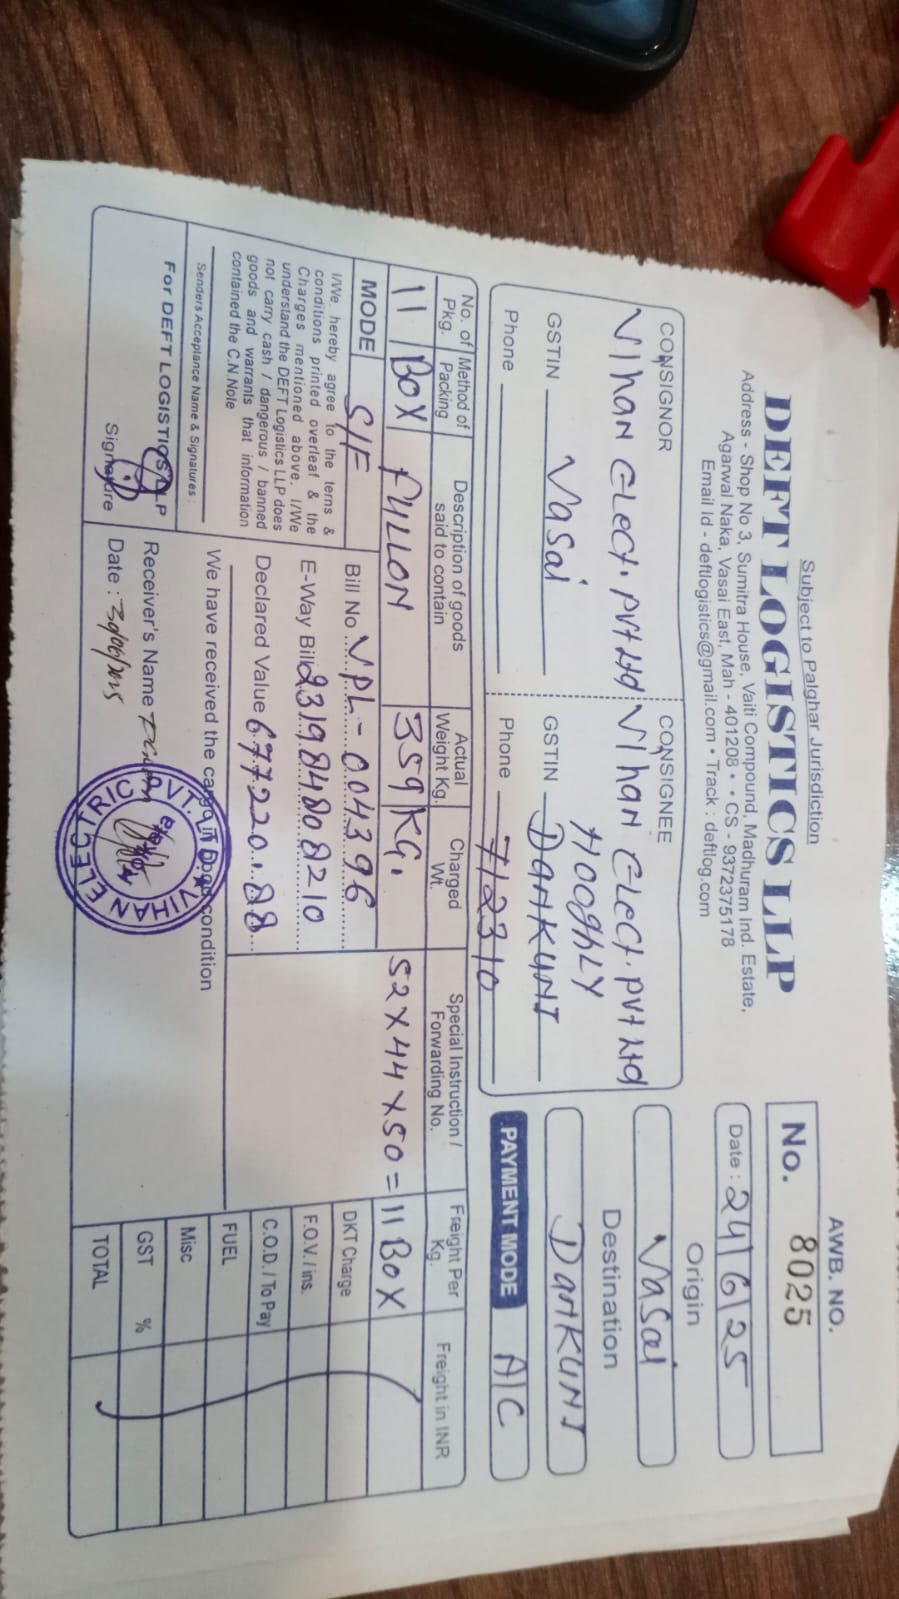 Subject to Palghar Jurisdiction
DEFT LOGISTICS LLP
Address - Shop No 3, Sumitra House, Vaiti Compound, Madhuram Ind. Estate,
Agarwal Naka, Vasai East, Mah - 401208 • CS - 9372375178
Email Id - deftlogistics@gmail.com • Track : deftlog.com
AWB. NO.
No. 8025
Date : 24/6/25
Origin
Vasai
Destination
DANKUNI
PAYMENT MODE A/C
CONSIGNOR
Vihan Elect. Pvt Ltd
Vasai
GSTIN
Phone
CONSIGNEE
Vihan Elect. Pvt Ltd
HOOGHLY
GSTIN DANKUNI
Phone 712310
No. of Pkg. Method of Packing Description of goods said to contain Actual Weight Kg. Charged Wt. Special Instruction / Forwarding No. Freight Per Kg. Freight in INR
11 BOX 359 KG. 52 X 44 X 50 = 11 BOX
MODE S/F
Bill No. VPL-004396
E-Way Bill 231984808210
Declared Value 677220.88
I/We. hereby agree to the tems &
conditions printed overleaf & the
Charges mentioned above. I/We
understand the DEFT Logistics LLP does
not carry cash / dangerous / banned
goods and warrants that information
contained the C.N Note
Senders Acceptance Name & Signatures :
For DEFT LOGISTICS LLP
Signature
We have received the cargo in good condition
Receiver's Name
Date :
VIHAN ELECTRIC PVT.
DKT Charge
F.O.V. / ins.
C.O.D. / To Pay
FUEL
Misc
GST %
TOTAL